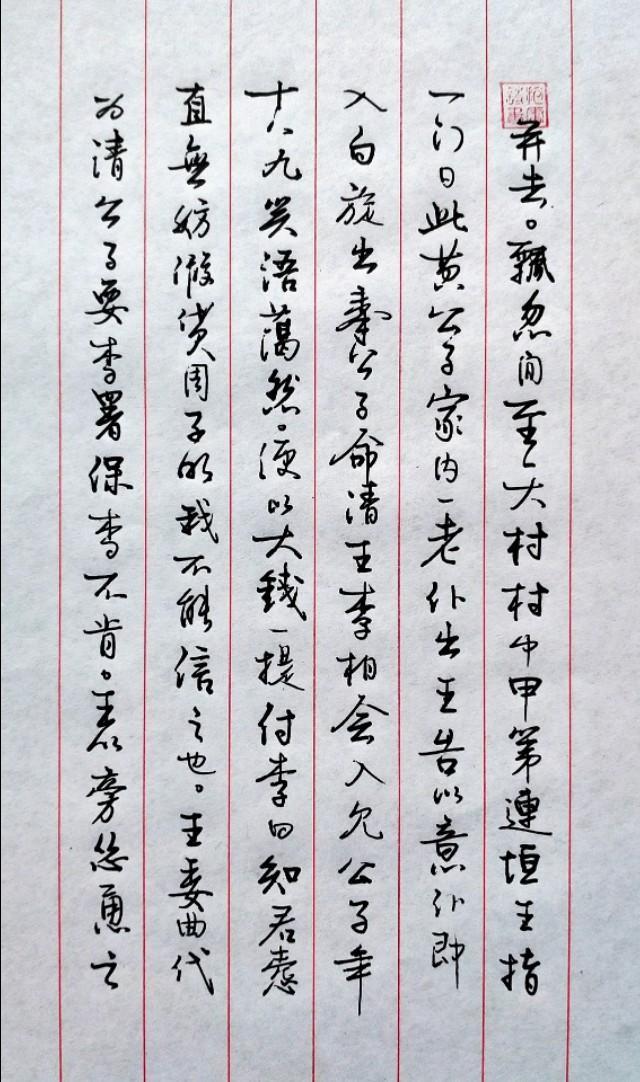 并去。飄忽间至一大村村中甲第連垣王指
一门曰此黄公子家内一老仆出王告以意仆即
入白旋出奉公子命请王李相会入見公子年
十八九笑语蔼然。便以大錢一提付李曰知君悫
直無妨假貸周子明我不能信之也。王委曲代
为请公子要李署保李不肯。王从旁怂恿之